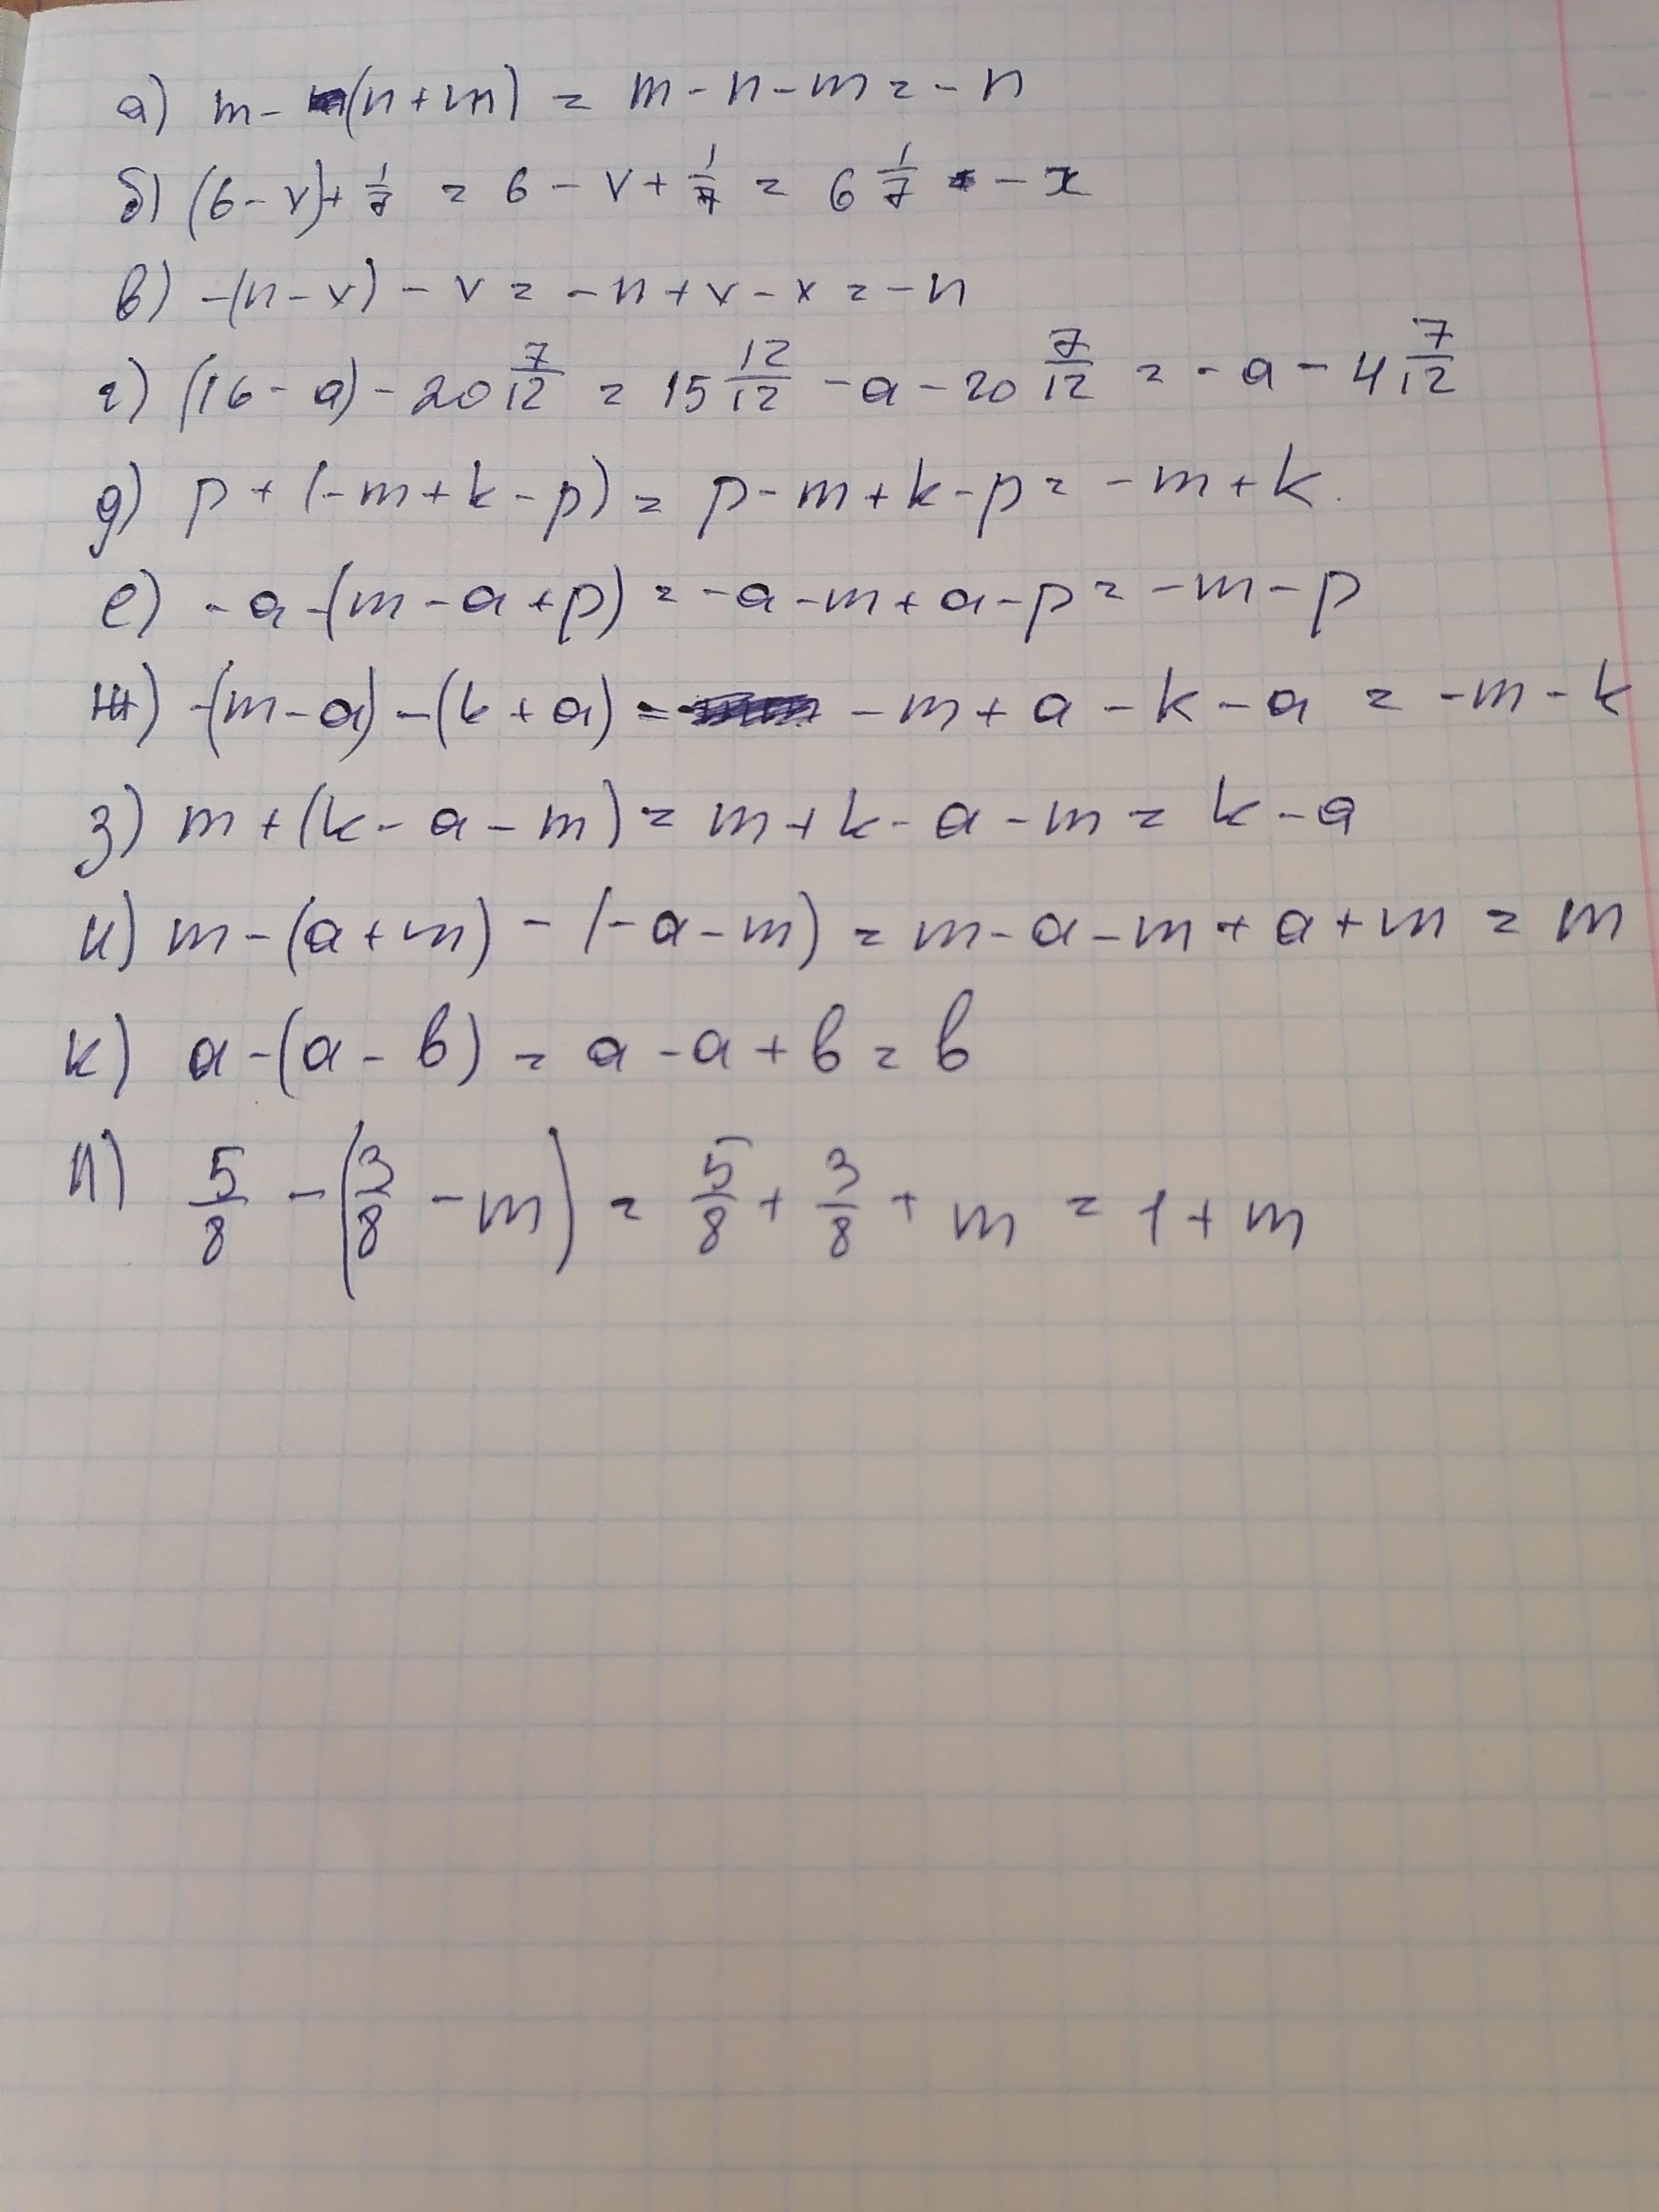 а) m - (n + m) = m - n - m = - n
б) (6 - x) + 1/7 = 6 - x + 1/7 = 6 1/7 - x
в) -(n - x) - x = - n + x - x = - n
г) (16 - a) - 20 7/12 = 15 12/12 - a - 20 7/12 = - a - 4 7/12
д) p + (- m + k - p) = p - m + k - p = - m + k.
е) - a - (m - a + p) = - a - m + a - p = - m - p
ж) -(m - a) - (k + a) = - m + a - k - a = - m - k
з) m + (k - a - m) = m + k - a - m = k - a
и) m - (a + m) - (- a - m) = m - a - m + a + m = m
к) a - (a - b) = a - a + b = b
л) 5/8 - (3/8 - m) = 5/8 + 3/8 + m = 1 + m